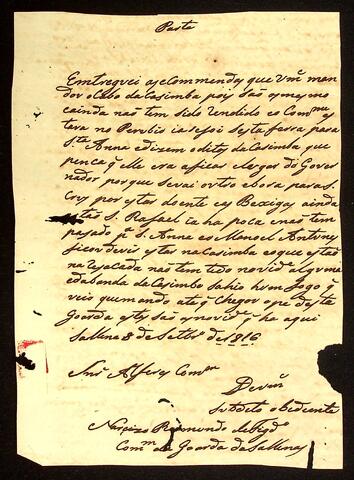 Parte
Emtreguei as Recommendas que Vm̃ man
dou o Cabo da Casimba pois são o mesmo
e ainda não tem sido rendido e o Comm.te es
tava no Perubio ia se foi Sesta ferra para
S.ta Anna e dizem o ditos da Casimba que
penca q̃ elle era a ficar
nador porque se vai outro e bora para S.
Cruz por estar doente e as Bexigas ainda
estão S. Rafael ia ha poca e não tem
pasado p.ª S. Anna e o Manoel Antune
ficou devir estar na Casimba e o que estão
na Resacada não tem tido novid.e alguma
e da banda da Casimba Sahio hum fogo q̃
veio queimando ate q̃ chegou ao pe desta
Goarda estas são as novid.es q̃ ha aqui
Sallina 8 de Setbr.o de 1816
Snr. Alferes Com.te
De Vm̃
Subdito obediente
Narcizo Raimundo de
Com.te da Goarda da Sallina